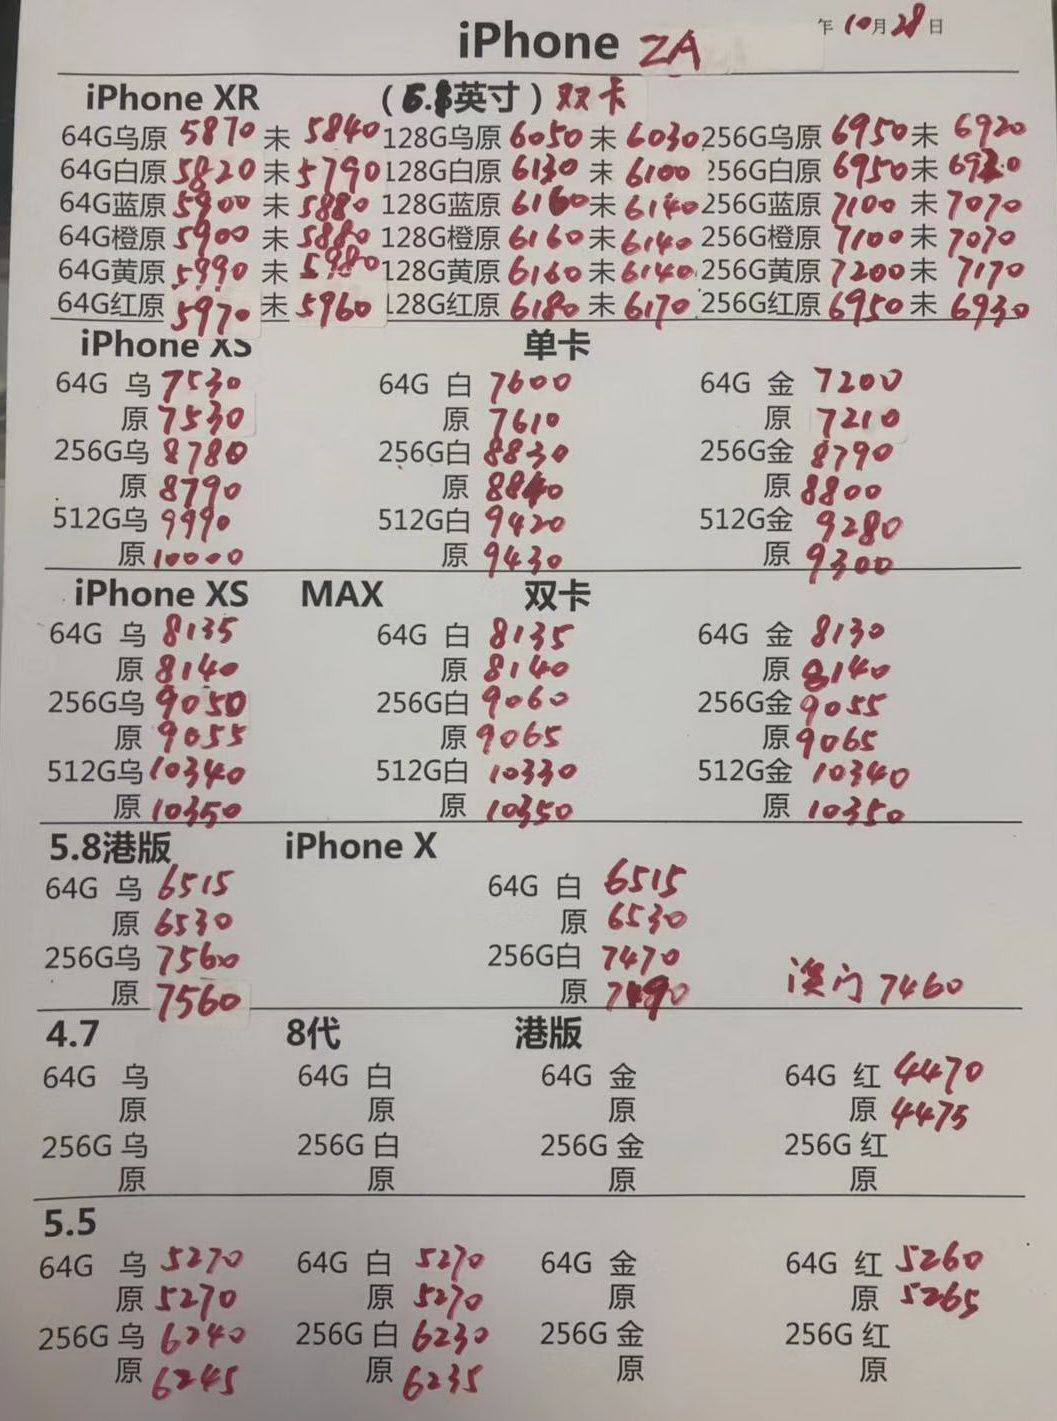 iPhone ZA 年10月28日
iPhone XR (6.英寸) 双卡
64G乌原 5870 未 5840 128G乌原 6050 未 6030 256G乌原 6950 未 6920
64G白原 5820 未 5790 128G白原 6130 未 6100 256G白原 6950 未
64G蓝原 5900 未 5880 128G蓝原 6160 未 6140 256G蓝原 7100 未 7070
64G橙原 5900 未 5880 128G橙原 6160 未 6140 256G橙原 7100 未 7070
64G黄原 5990 未 5980 128G黄原 6160 未 6140 256G黄原 7200 未 7170
64G红原 5970 未 5960 128G红原 6180 未 6170 256G红原 6950 未 6930
iPhone XS 单卡
64G 乌 7530 64G 白 7600 64G 金 7200
原 7530 原 7610 原 7210
256G乌 8780 256G白 8830 256G金 8790
原 8790 原 8840 原 8800
512G乌 9990 512G白 9420 512G金 9280
原 10000 原 9430 原 9300
iPhone XS MAX 双卡
64G 乌 8135 64G 白 8135 64G 金 8130
原 8140 原 8140 原 8140
256G乌 9050 256G白 9060 256G金 9055
原 9055 原 9065 原 9065
512G乌 10340 512G白 10330 512G金 10340
原 10350 原 10350 原 10350
5.8港版 iPhone X
64G 乌 6515 64G 白 6515
原 6530 原 6530
256G乌 7560 256G白 7470 澳门 7460
原 7560 原 7490
4.7 8代 港版
64G 乌 64G 白 64G 金 64G 红 4470
原 原 原 原 4475
256G 乌 256G 白 256G 金 256G 红
原 原 原 原
5.5
64G 乌 5270 64G 白 5270 64G 金 64G 红 5260
原 5270 原 5270 原 原 5265
256G 乌 6240 256G 白 6230 256G 金 256G 红
原 6245 原 6235 原 原